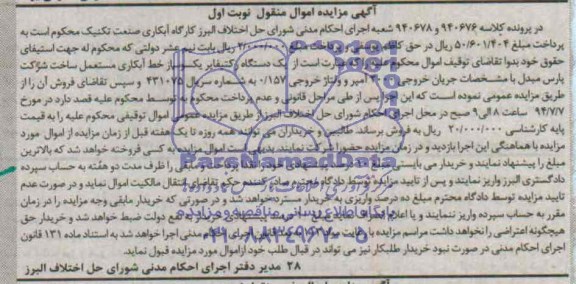 آگهی مزایده اموال منقول نوبت اول
در پرونده کلاسه ۹۴۰۶۷۶ و ۹۴۰۶۷۸ شعبه اجرای احکام مدنی شورای حل اختلاف البرز کارگاه آبکاری صنعت تکنیک محکوم است به
پرداخت مبلغ ۵۰/۶۰۱/۴۰۴ ریال در حق و پرداخت مبلغ ریال بابت نیم عشر دولتی که محکوم له جهت استیفای
حقوق خود بدوا تقاضای توقیف اموال محکوم علیه را که عبارت است از یک دستگاه رکتیفایر یکسوساز خط آبکاری مستعمل ساخت شرکت
پارس مبدل با مشخصات جریان خروجی آمپر و ولتاژ خروجی ۰/۱۵۷ به شماره سریال ۴۳۱۰۷۵ و سپس تقاضای فروش آن را از
طریق مزایده عمومی نموده است که این اجرا پس از طی مراحل قانونی و عدم پرداخت محکوم به توسط محکوم علیه قصد دارد در مورخ
۹۴/۷/۷ ساعت ۸ الی ۹ صبح در محل اجرای احکام شورای حل اختلاف البرز از طریق مزایده عمومی اموال توقیفی محکوم علیه را به قیمت
پایه کارشناسی ۲۰/۰۰۰/۰۰۰ ریال به فروش برساند. طالبین و خریداران می توانند همه روزه تا یک هفته قبل از زمان مزایده از اموال مورد
مزایده با هماهنگی این اجرا بازدید و در زمان مزایده حضورا شرکت نمایند. بدیهی است اموال مزایده به کسی فروخته خواهد شد که بالاترین
مبلغ را پیشنهاد نمایند و خریدار می بایستی و مابقی را ظرف مدت دو هفته به حساب سپرده
دادگستری البرز واریز نمایند و پس از تایید مزایده توسط دادگاه محترم تقاضای انتقال مالکیت اموال نماید و در صورت عدم
تایید مزایده توسط دادگاه محترم مبلغ ده درصد واریزی به خریدار مسترد خواهد شد و در صورتی که خریدار مابقی وجه مزایده را در زمان
مقرر به حساب سپرده واریز ننمایند و یا اعلام دولت ضبط خواهد شد و خریدار حق
هیچگونه اعتراضی را نخواهد داشت مراسم مزایده با رعایت احکام مدنی اجرا خواهد شد به استناد ماده ۱۳۱ قانون
اجرای احکام مدنی در صورت نبود خریدار طلبکار نیز می تواند در قبال طلب خود از اموال مورد مزایده قبول نماید.
۲۸ مدیر دفتر اجرای احکام مدنی شورای حل اختلاف البرز
ParsNamadData
پایگاه اطلاع رسانی مناقصه و مزایده
۰۲۱-۸۸۳۴۹۶۷۰-۵